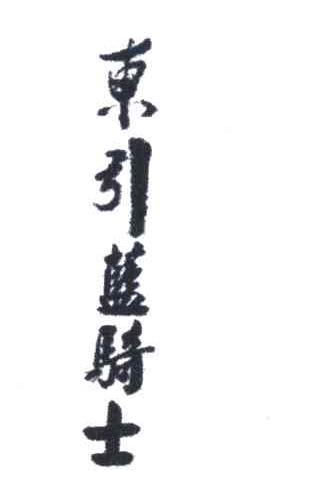 東引藍騎士